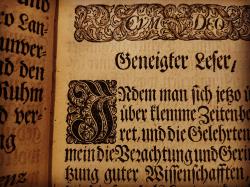 ro Lan-
unver-
nd den
Ruhm
d ver-
ng
ens
CVM DEO
Geneigter Leser/
INdem man sich jetzo
über klemme Zeiten be
ret, und die Gelehrten
mein die Verachtung und Geri
tzung guter Wissenschafften